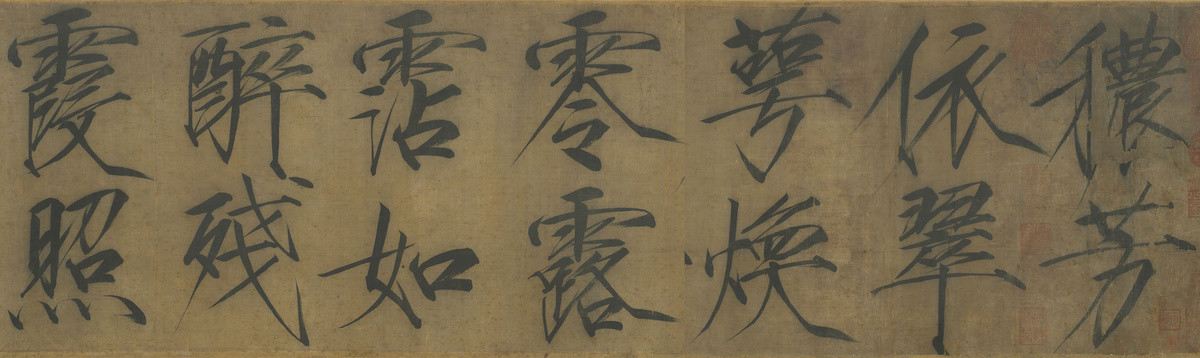 穠芳
依翠
萼煥
零露
霑如
醉殘
霞照